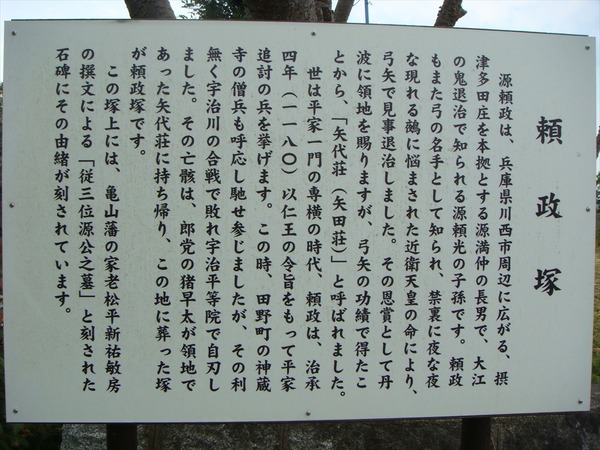 頼政塚
源頼政は、兵庫県川西市周辺に広がる、摂
津多田庄を本拠とする源満仲の長男で、大江
の鬼退治で知られる源頼光の子孫です。頼政
もまた弓の名手として知られ、禁裏に夜な夜
な現れる鵺に悩まされた近衛天皇の命により、
弓矢で見事退治しました。その恩賞として丹
波に領地を賜りますが、弓矢の功績で得たこ
とから、「矢代荘(矢田荘)」と呼ばれました。
世は平家一門の専横の時代、頼政は、治承
四年(一一八〇)以仁王の令旨をもって平家
追討の兵を挙げます。この時、田野町の神蔵
寺の僧兵も呼応し馳せ参じましたが、その利
無く宇治川の合戦で敗れ宇治平等院で自刃し
ました。その亡骸は、郎党の猪早太が領地で
あった矢代荘に持ち帰り、この地に葬った塚
が頼政塚です。
この塚上には、亀山藩の家老松平新祐敏房
の撰文による「従三位源公之墓」と刻された
石碑にその由緒が刻されています。